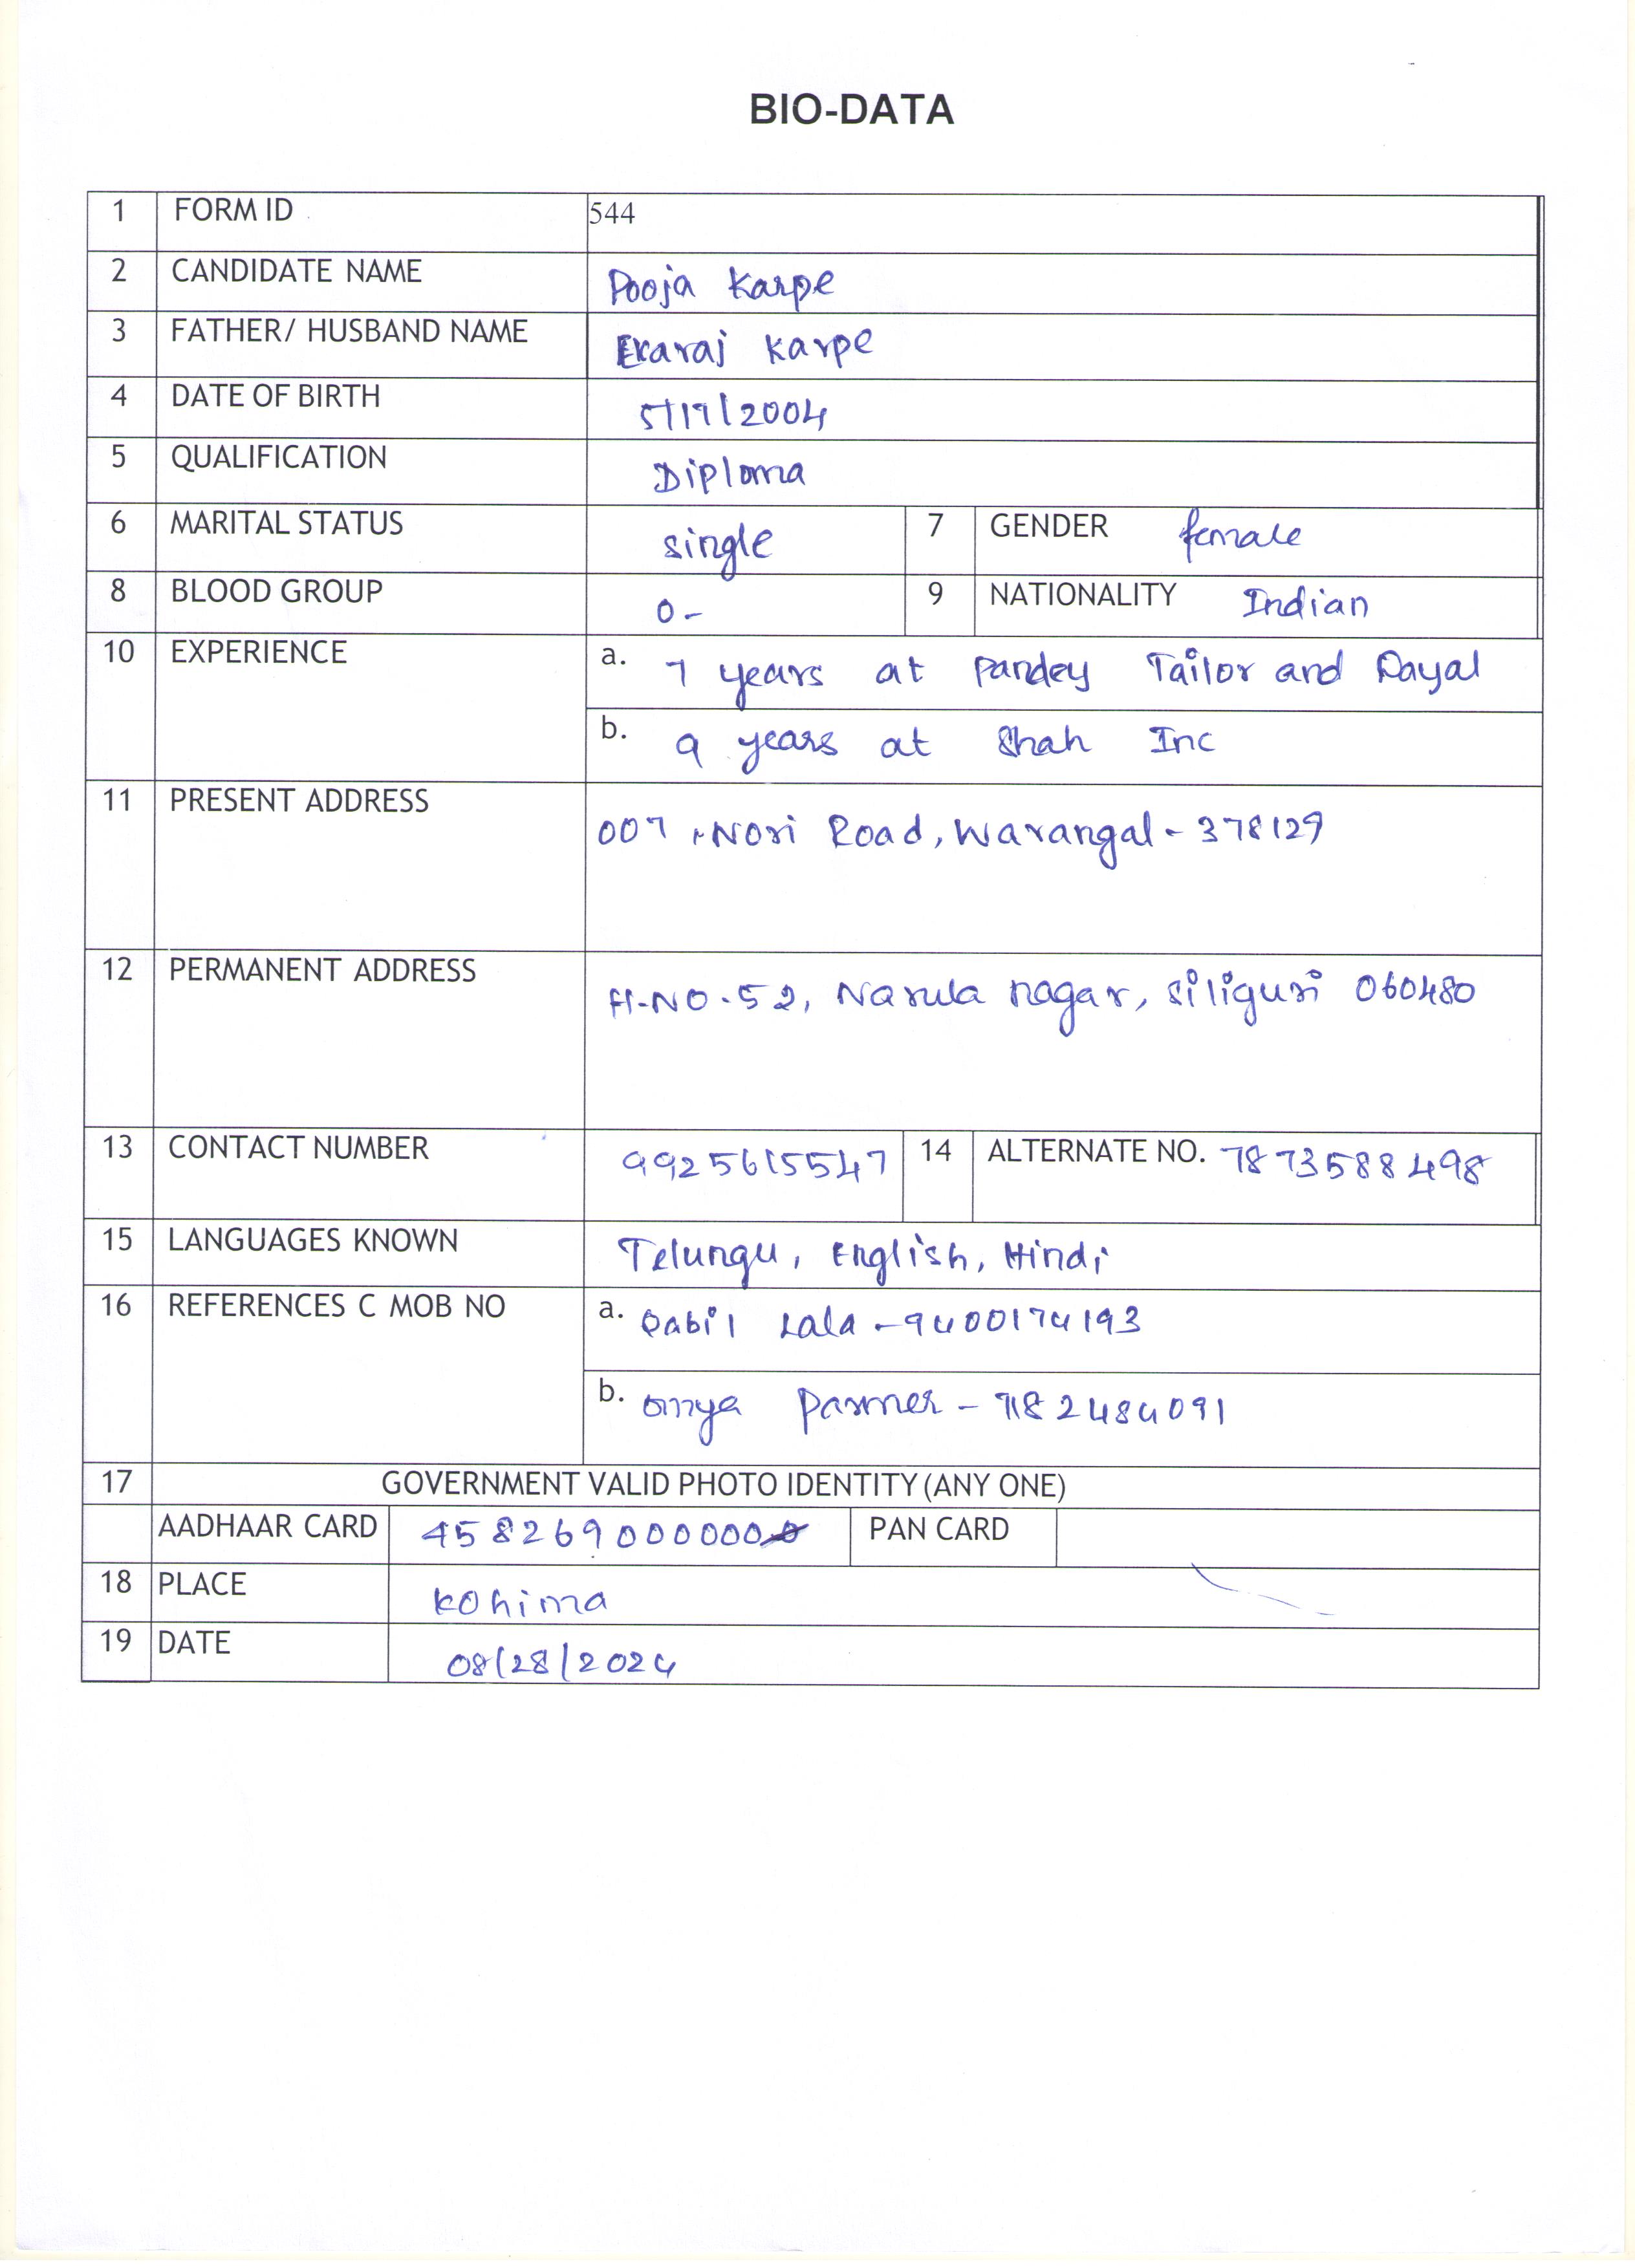 BIO-DATA
1 FORM ID 544
2 CANDIDATE NAME Pooja Karpe
3 FATHER/ HUSBAND NAME Ekaraj Karpe
4 DATE OF BIRTH 5/17/2004
5 QUALIFICATION Diploma
6 MARITAL STATUS single 7 GENDER female
8 BLOOD GROUP O- 9 NATIONALITY Indian
10 EXPERIENCE a. 7 years at Pandey Tailor and Dayal
b. 9 years at Shah Inc
11 PRESENT ADDRESS 007, Nori Road, Warangal - 378129
12 PERMANENT ADDRESS H-NO-52, Narula nagar, Siliguri 060480
13 CONTACT NUMBER 9925615547 14 ALTERNATE NO. 7873588498
15 LANGUAGES KNOWN Telungu, English, Hindi
16 REFERENCES C MOB NO a. Qabil Lala - 9400174193
b. Parmer - 7182484091
17 GOVERNMENT VALID PHOTO IDENTITY (ANY ONE)
AADHAAR CARD 458269000000 PAN CARD
18 PLACE Kohima
19 DATE 08/28/2024